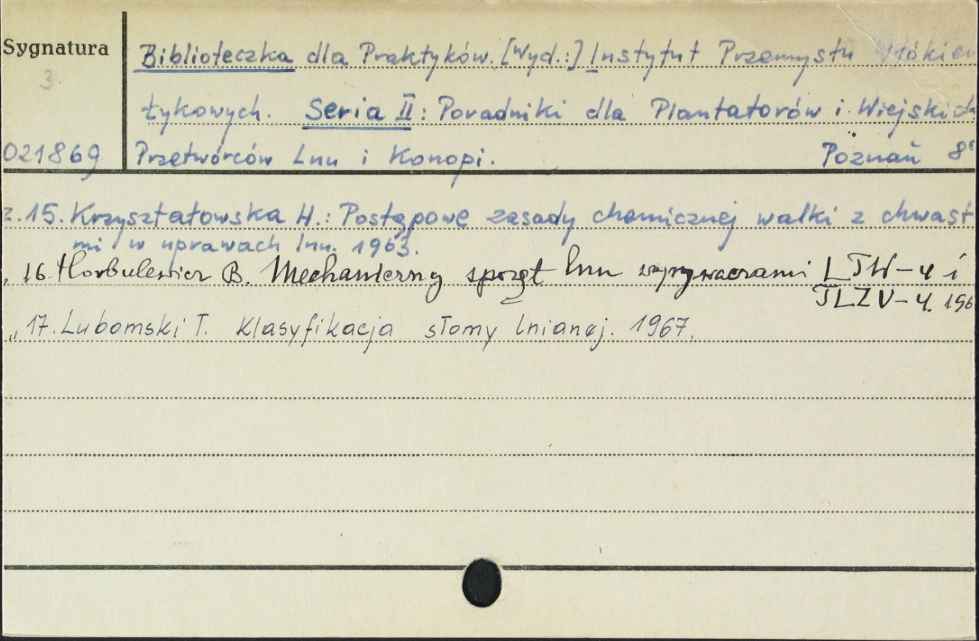 Sygnatura
3.
Biblioteczka dla Praktyków. [Wyd.:] Instytut Przemysłu Włókien
Łykowych. Seria II: Poradniki dla Plantatorów i Wiejskich
021869 Przetwórców Lnu i Konopi. Poznań 8°
z. 15. Krzyształowska H.: Postępowe zasady chemicznej walki z chwast
mi w uprawach lnu. 1963.
„ 16. Horbulewicz B. Mechaniczny sprzęt lnu wyrywaczami LTW-4 i
TLZV-4. 196
„ 17. Lubomski T. Klasyfikacja słomy lnianej. 1967.